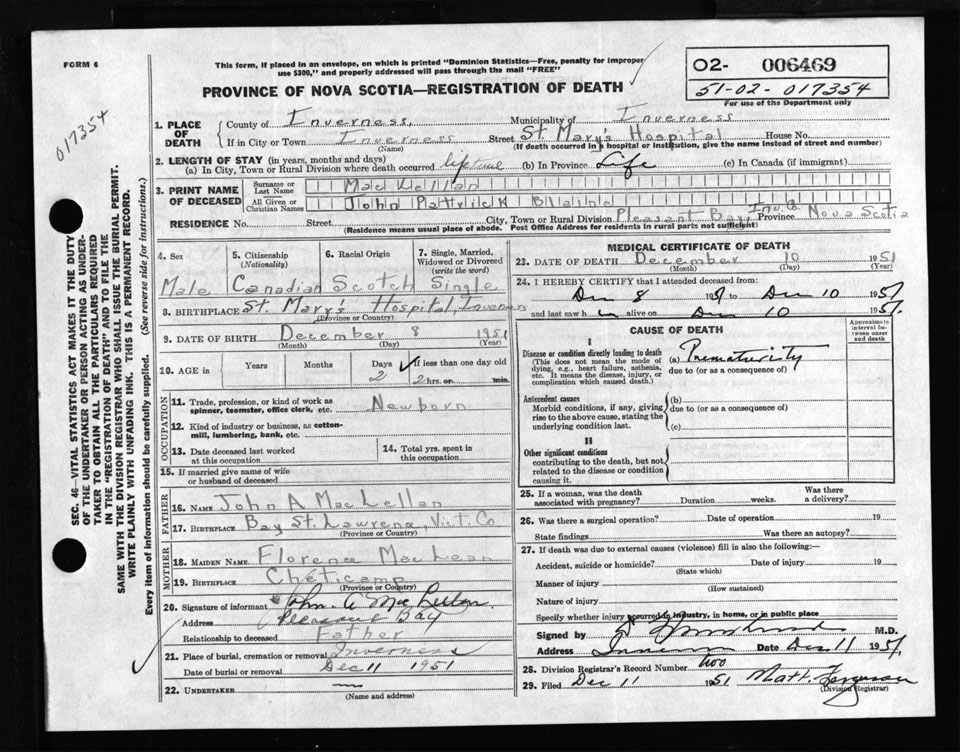 FORM 6
This form, if placed in an envelope, on which is printed "Dominion Statistics—Free, penalty for improper
use $300," and properly addressed will pass through the mail "FREE"
PROVINCE OF NOVA SCOTIA—REGISTRATION OF DEATH
O2- 006469
51-02-017354
For use of the Department only
017354
SEC. 46—VITAL STATISTICS ACT MAKES IT THE DUTY
OF THE UNDERTAKER OR PERSON ACTING AS UNDER-
TAKER TO OBTAIN ALL THE PARTICULARS REQUIRED
IN THE "REGISTRATION OF DEATH" AND TO FILE THE
SAME WITH THE DIVISION REGISTRAR WHO SHALL ISSUE THE BURIAL PERMIT.
WRITE PLAINLY WITH UNFADING INK. THIS IS A PERMANENT RECORD.
Every item of information should be carefully supplied. (See reverse side for instructions.)
1. PLACE OF DEATH
County of Inverness, Municipality of Inverness
If in City or Town Inverness Street St. Mary's Hospital House No.
(Name) (If death occurred in a hospital or institution, give the name instead of street and number)
2. LENGTH OF STAY (in years, months and days)
(a) In City, Town or Rural Division where death occurred lifetime (b) In Province Life (c) In Canada (if immigrant)
3. PRINT NAME OF DECEASED
Surname or Last Name MacLellan
All Given or Christian Names John Patrick Blaine
RESIDENCE No. Street City, Town or Rural Division Pleasant Bay, Inv. Co. Province Nova Scotia
(Residence means usual place of abode. Post Office Address for residents in rural parts not sufficient)
4. Sex 5. Citizenship (Nationality) 6. Racial Origin 7. Single, Married, Widowed or Divorced (write the word)
Male Canadian Scotch Single
8. BIRTHPLACE St. Mary's Hospital, Inverness
(Province or Country)
9. DATE OF BIRTH December 8 1951
(Month) (Day) (Year)
10. AGE in Years Months Days If less than one day old
2 2 hrs. or min.
OCCUPATION
11. Trade, profession, or kind of work as
spinner, teamster, office clerk, etc. Newborn
12. Kind of industry or business, as cotton-
mill, lumbering, bank, etc.
13. Date deceased last worked at this occupation
14. Total yrs. spent in this occupation
15. If married give name of wife
or husband of deceased
FATHER
16. NAME John A MacLellan
17. BIRTHPLACE Bay St. Lawrence, Vict. Co
(Province or Country)
MOTHER
18. MAIDEN NAME Florence MacLean
19. BIRTHPLACE Cheticamp
(Province or Country)
20. Signature of informant John A MacLellan
Address Pleasant Bay
Relationship to deceased Father
21. Place of burial, cremation or removal Inverness
Date of burial or removal Dec 11 1951
22. UNDERTAKER
(Name and address)
MEDICAL CERTIFICATE OF DEATH
23. DATE OF DEATH December 10 1951
(Month) (Day) (Year)
24. I HEREBY CERTIFY that I attended deceased from:
Dec 8 1951 to Dec 10 1951
and last saw h im alive on Dec 10 1951.
CAUSE OF DEATH
Approximate interval between onset and death
I
Disease or condition directly leading to death
(This does not mean the mode of
dying, e.g., heart failure, asthenia,
etc. It means the disease, injury, or
complication which caused death.)
(a) Prematurity
due to (or as a consequence of)
Antecedent causes
Morbid conditions, if any, giving
rise to the above cause, stating the
underlying condition last.
(b)
due to (or as a consequence of)
(c)
II
Other significant conditions
contributing to the death, but not
related to the disease or condition
causing it.
25. If a woman, was the death
associated with pregnancy? Duration weeks. Was there a delivery?
26. Was there a surgical operation? Date of operation 19
State findings Was there an autopsy?
27. If death was due to external causes (violence) fill in also the following:—
Accident, suicide or homicide? Date of injury 19
(State which)
Manner of injury
(How sustained)
Nature of injury
Specify whether injury occurred in industry, in home, or in public place
Signed by M.D.
Address Inverness Date Dec 11 1951
28. Division Registrar's Record Number two
29. Filed Dec 11 1951 Matt. Ferguson
(Division Registrar)